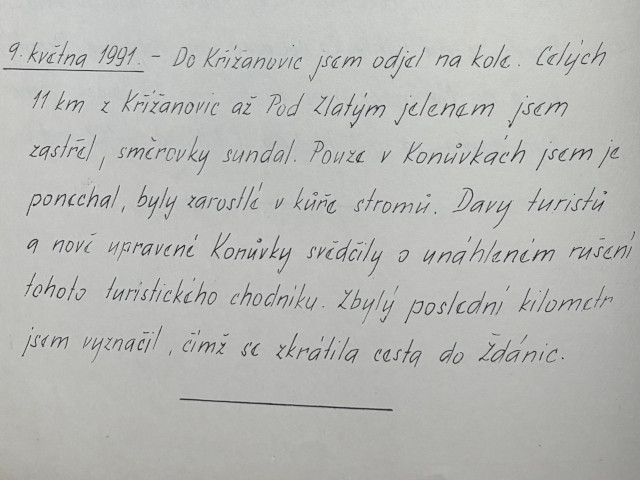 9. května 1991. - Do Křižanovic jsem odjel na kole. Celých
11 km z Křižanovic až Pod Zlatým jelenem jsem
zastřel, směrovky sundal. Pouze v Konůvkách jsem je
ponechal, byly zarostlé v kůře stromů. Davy turistů
a nově upravené Konůvky svědčily o unáhleném rušení
tohoto turistického chodníku. Zbylý poslední kilometr
jsem vyznačil, čímž se zkrátila cesta do Ždánic.